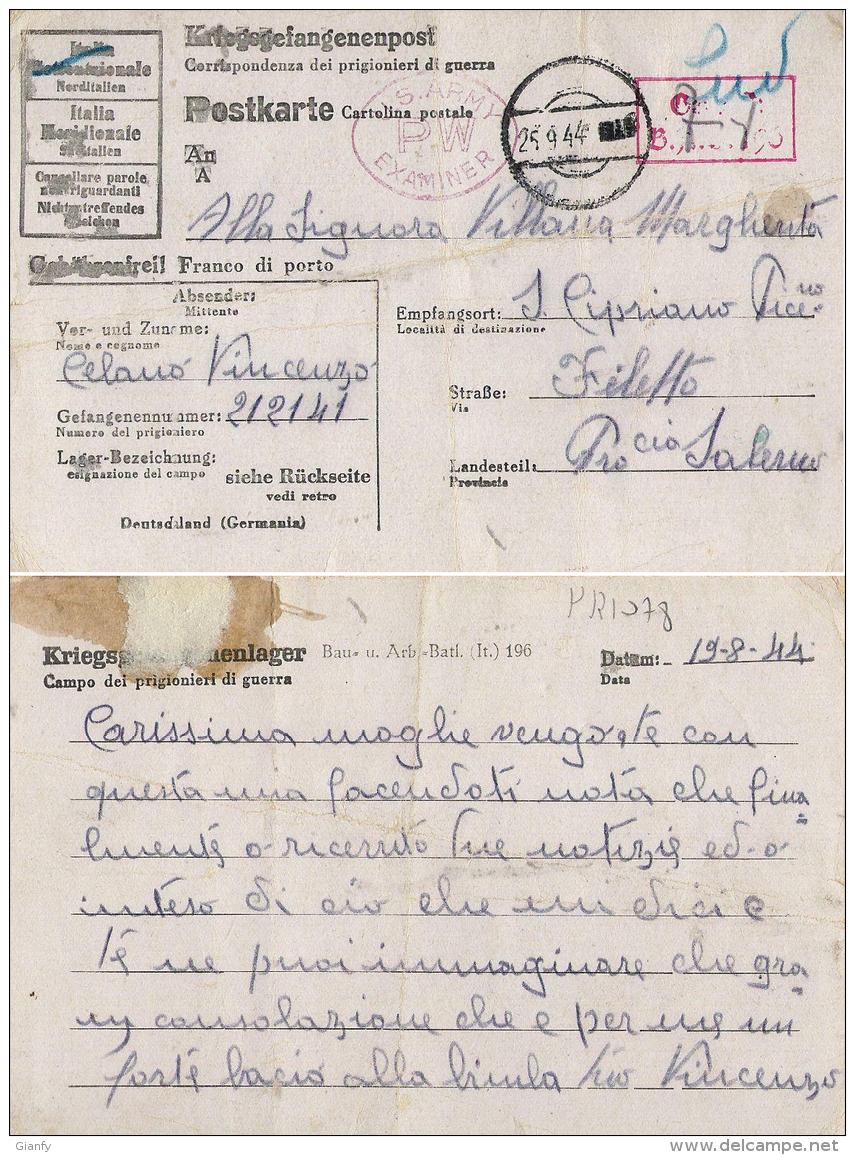 Kriegsgefangenenpost
Corrispondenza dei prigionieri di guerra
Postkarte Cartolina postale
An
A
Italia
Settentrionale
Norditalien
Italia
Meridionale
Süditalien
Cancellare parole
non riguardanti
Nichtzutreffendes
streichen
Sud
S. ARMY
PW
EXAMINER
25.9.44
Alla Signora Villana Margherita
Gebührenfrei! Franco di porto
Absender:
Mittente
Vor- und Zuname:
Nome e cognome
Celano Vincenzo
Gefangenennummer: 212141
Numero del prigioniero
Lager-Bezeichnung:
esignazione del campo
siehe Rückseite
vedi retro
Deutschland (Germania)
Empfangsort: S. Cipriano Piceno
Località di destinazione
Straße: Filetto
Via
Landesteil: Procia Salerno
Provincia
PR1078
Kriegsgefangenenlager Bau- u. Arb.-Batl. (It.) 196
Campo dei prigionieri di guerra
Datum: 19-8-44
Data
Carissima moglie vengo, te con
questa mia facendoti nota che fina=
lmente o ricevuto tue notizie ed-o
inteso di cio che mi dici e
te ne puoi immaginare che gra=
n consolazione che e per me un
forte bacio alla bimba tuo Vincenzo
Gianfy
delcampe.net